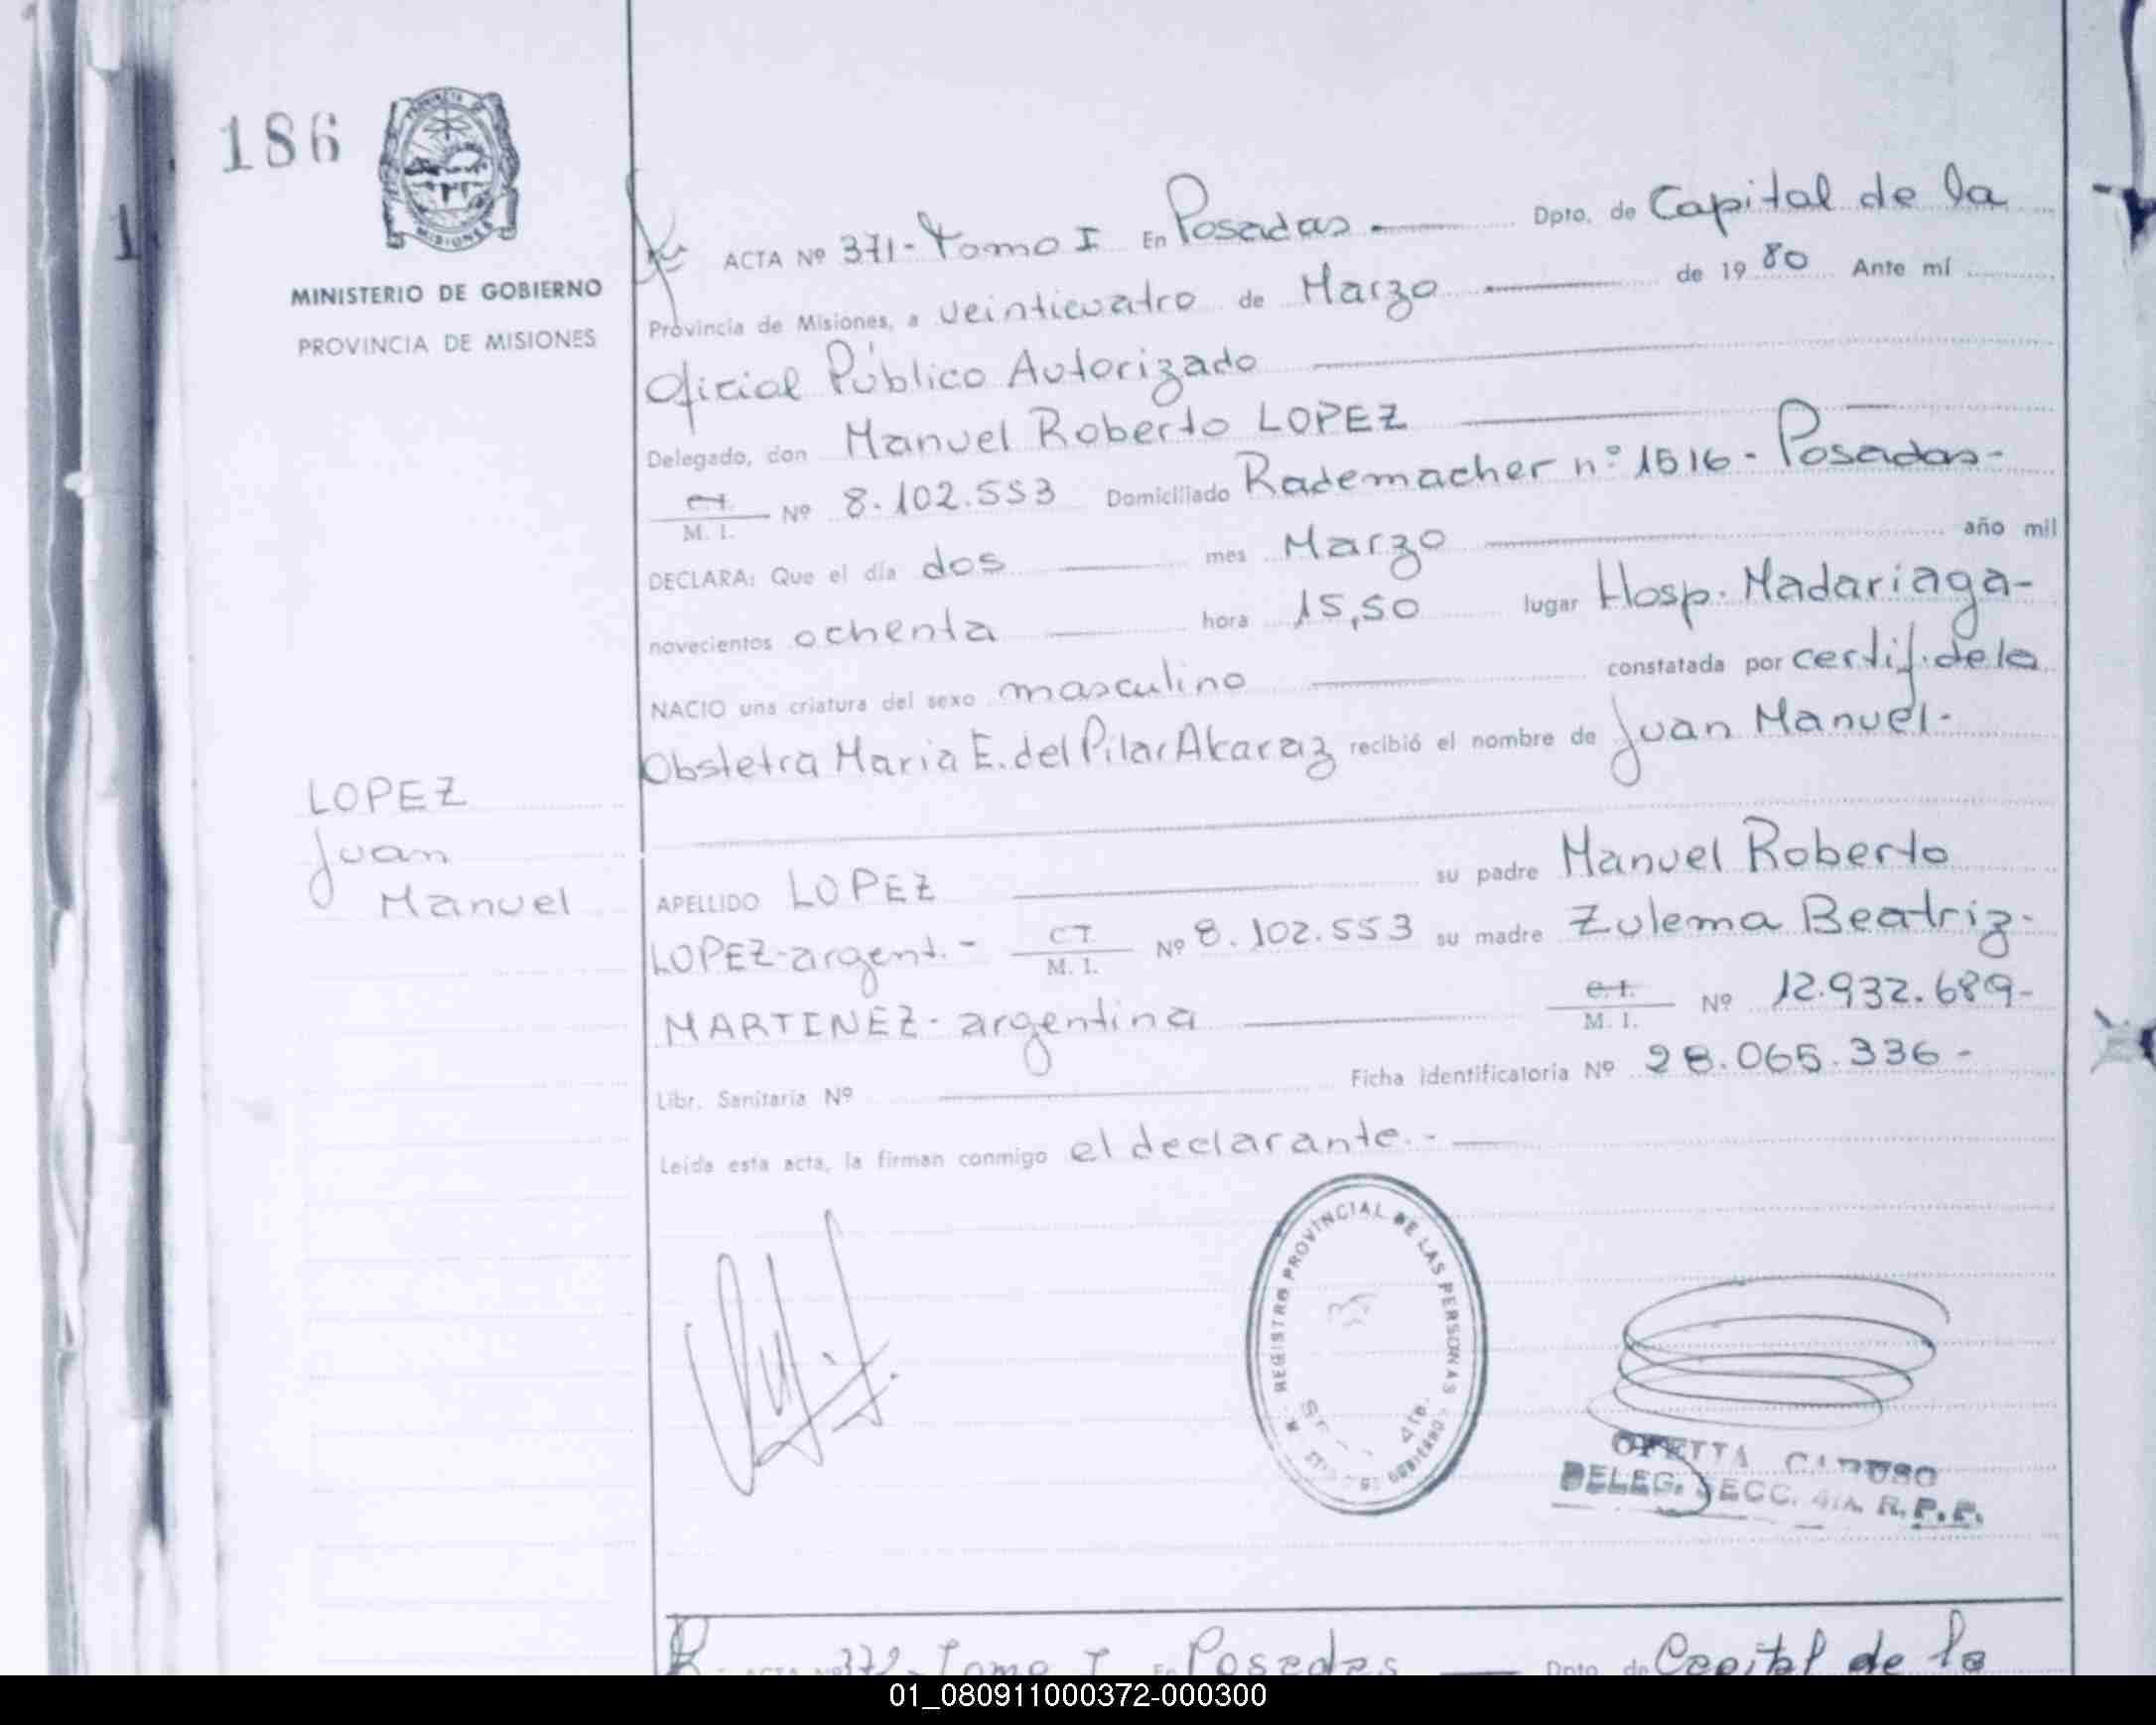 186
PROVINCIA DE
MISIONES
MINISTERIO DE GOBIERNO
PROVINCIA DE MISIONES
ACTA Nº 371- Tomo I En Posadas Dpto. de Capital de la
Provincia de Misiones, a veinticuatro de Marzo de 1980 Ante mí
Oficial Público Autorizado
Delegado, don Manuel Roberto LOPEZ
C.I.
M. I. Nº 8.102.553 Domiciliado Rademacher nº 1516- Posadas-
DECLARA: Que el día dos mes Marzo año mil
novecientos ochenta hora 15,50 lugar Hosp. Madariaga-
NACIO una criatura del sexo masculino constatada por certif. de la
Obstetra Maria E. del Pilar Alcaraz recibió el nombre de Juan Manuel-
LOPEZ
Juan
Manuel
APELLIDO LOPEZ su padre Manuel Roberto
LOPEZ-argent.- C.I.
M. I. Nº 8.102.553 su madre Zulema Beatriz-
MARTINEZ- argentina C.I.
M. I. Nº 12.932.689-
Libr. Sanitaria Nº Ficha identificatoria Nº 28.065.336-
Leída esta acta, la firman conmigo el declarante.-
REGISTRO PROVINCIAL DE LAS PERSONAS
CARUSO
DELEG. SECC. 4ta. R.P.P.
ACTA Nº 372- Tomo I En Posadas Dpto. de Capital de la
01_080911000372-000300